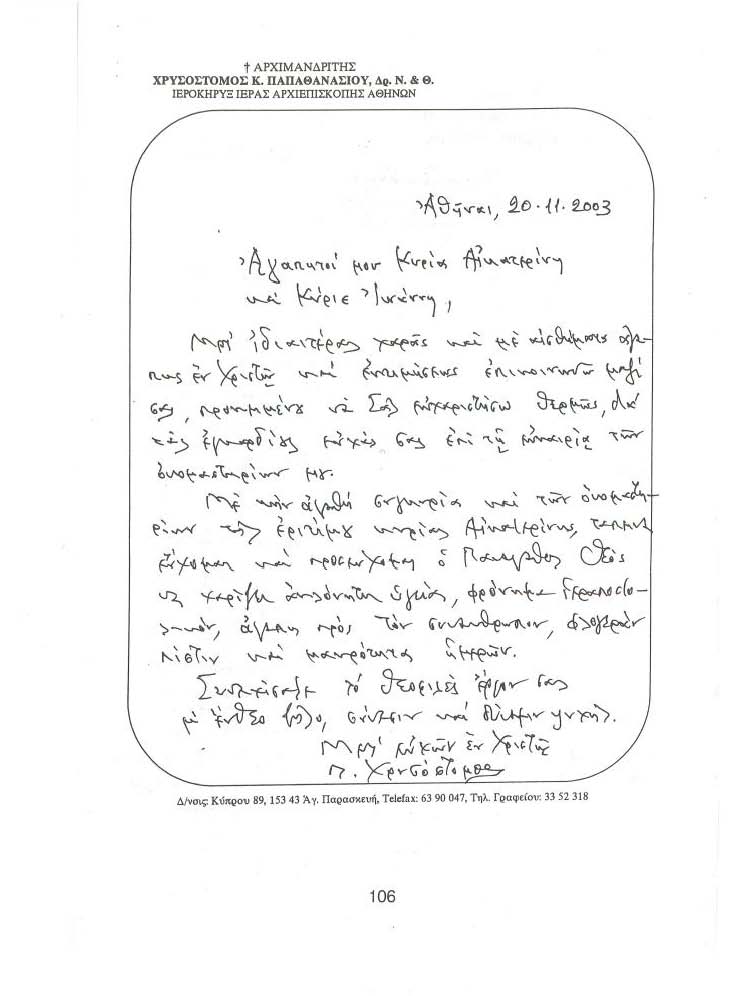 † ΑΡΧΙΜΑΝΔΡΙΤΗΣ
ΧΡΥΣΟΣΤΟΜΟΣ Κ. ΠΑΠΑΘΑΝΑΣΙΟΥ, Δρ. Ν. & Θ.
ΙΕΡΟΚΗΡΥΞ ΙΕΡΑΣ ΑΡΧΙΕΠΙΣΚΟΠΗΣ ΑΘΗΝΩΝ
Ἀθῆναι, 20·11·2003
Ἀγαπητοί μου Κυρία Αἰκατερίνη
καί Κύριε Ἰωάννη,
Μετ' ἰδιαιτέρας χαρᾶς καί μέ αἰσθήματα ἀγά-
πης ἐν Χριστῷ καί ἐκτιμήσεως ἐπικοινωνῶ μαζί
σας, προκειμένου νά Σᾶς εὐχαριστήσω θερμῶς, διά
τάς ἐγκαρδίους εὐχάς σας ἐπί τῇ εὐκαιρίᾳ τῶν
ὀνομαστηρίων μου.
Μέ τήν ἀγαθή συγκυρία καί τῶν ὀνομαστη-
ρίων τῆς ἐριτίμου κυρίας Αἰκατερίνης,
εὔχομαι καί προσεύχομαι ὁ Πανάγαθος Θεός
νά χαρίζῃ ὑγεία, φρόνημα ἱεραποστο-
λικόν, ἀγάπη πρός τόν συνάνθρωπον, φλογεράν
πίστιν καί μακρότητα ἡμερῶν.
Συνεχίσατε τό θεοφιλές ἔργον σας
μέ ἔνθεο ζῆλο, σύνεσιν καί δύναμιν ψυχῆς.
Μετ' εὐχῶν ἐν Χριστῷ
π. Χρυσόστομος
Δ/νσις: Κύπρου 89, 153 43 Ἁγ. Παρασκευή, Telefax: 63 90 047, Τηλ. Γραφείου: 33 52 318
106